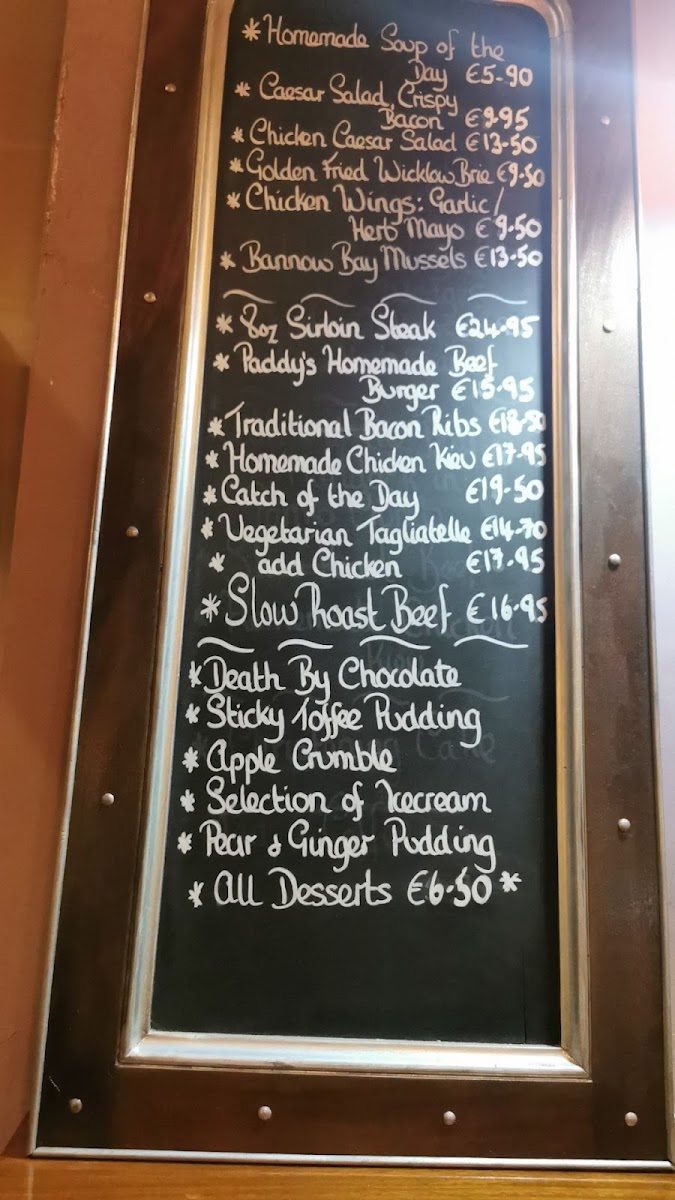 *Homemade Soup of the
Day €5-90
* Caesar Salad, Crispy
Bacon €9-95
* Chicken Caesar Salad €13-50
* Golden Fried Wicklow Brie €9-50
* Chicken Wings: Garlic/
Herb Mayo €9-50
* Bannow Bay Mussels €13-50
* 8oz Sirloin Steak €24-95
* Paddy's Homemade Beef
Burger €15-95
* Traditional Bacon Ribs €18-50
* Homemade Chicken Kiev €17-95
* Catch of the Day €19-50
* Vegetarian Tagliatelle €14-70
* add Chicken €17-95
* Slow Roast Beef €16-95
* Death By Chocolate
* Sticky Toffee Pudding
* Apple Crumble
* Selection of Icecream
* Pear & Ginger Pudding
* All Desserts €6-50 *